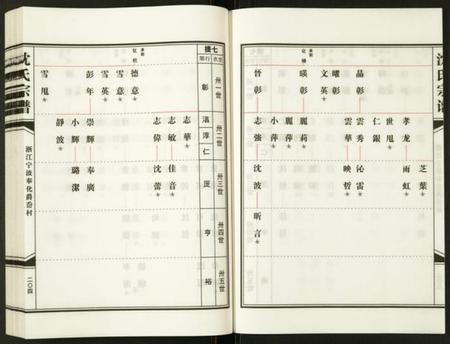 沈氏宗譜
芝葉
孝龙 雨虹
世甩
仁銀
晶彰 雲秀 沁雷
雲華 映哲
曜彰
文英
瑛彰 麗莉
麗萍
小萍
晉彰 志強 沈波 昕言
七提
世次 行第
卅一世 彰
卅二世 温淳仁
卅三世
卅四世 亨
卅五世 裕
德意 志華
志敏 佳音
志偉 沈蕾
雪意
雪英
彭年 崇輝 奉廣
小輝 璐潔
雪甩 靜波
沈氏宗譜
浙江宁波奉化爵岙村
二〇四